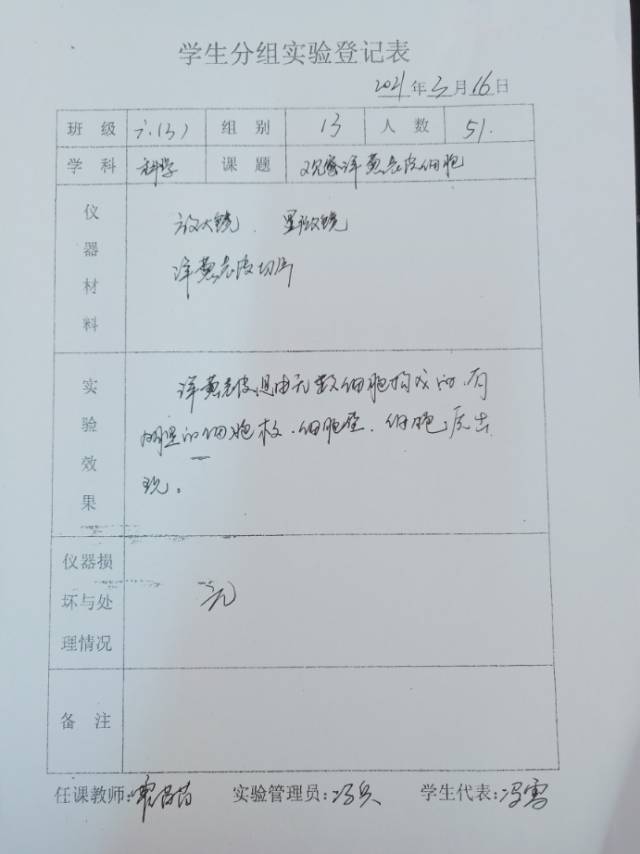 学生分组实验登记表
2021年3月16日
班级 六.(3) 组别 13 人数 51.
学科 科学 课题 观察洋葱表皮细胞
仪器材料
放大镜、显微镜
洋葱表皮切片
实验效果
洋葱表皮是由无数细胞构成的.有
明显的细胞核.细胞壁.细胞质出
现。
仪器损
坏与处
理情况
无
备注
任课教师: 实验管理员:冯兵 学生代表:冯雪